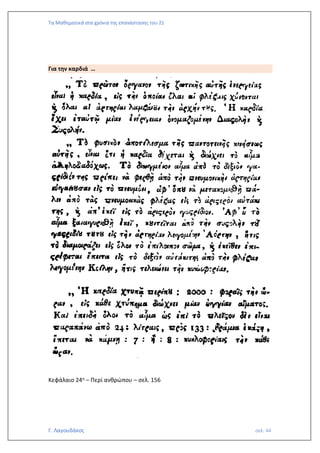 Τα Μαθηματικά στα χρόνια της επανάστασης του 21
Για την καρδιά …
,, Τὸ πρῶτον ὄργανον τῆς ζωτικῆς αὐτῆς ἐνεργείας
εἶναι ἡ καρδία, εἰς τὴν ὁποίαν ὅλαι αἱ φλέβες χύνονται
ἡ ὅλαι αἱ ἀρτηρίαι λαμβάνουν τὴν ἀρχήν τους. Ἡ καρδία
ἔχει ἐνταυτῷ μίαν ἐνέργειαν ὀνομαζομένην Διαςολὴν ἡ
Συςολήν.
,, Τὸ φυσικὸν ἀποτέλεσμα τῆς παντοτεινῆς κινήσεως
αὐτῆς, εἶναι ὅτι ἡ καρδία δέχεται ἡ διώχνει τὸ αἷμα
ἀλληλοδιαδόχως. Τὸ διωγμένον αἷμα ἀπὸ τὸ δεξιὸν γα-
ςρίδιον της πρέπει νὰ φερθῇ ἀπὸ τὴν πνευμονικὴν ἀρτηρίαν
εἰς τὸ πνευμόνι, ἀφ' ὅπου νὰ μετακομισθῇ πά-
λιν ἀπὸ τὰς πνευμονικὰς φλέβας εἰς τὸ ἀριςερὸν αὐτίον
της, ἡ ἀπ' ἐκεῖ εἰς τὸ ἀριςερὸν γαςρίδιον. Ἀφ' οὗ τὸ
αἷμα ξαναγυρισθῇ ἐκεῖ, κεντεῖται ἀπὸ τὴν συςολὴν τοῦ
γαςριδίου τούτου εἰς τὴν ἀρτηρίαν λεγομένην Ἀόρτην, ἥτις
τὸ διαμοιράζει εἰς ὅλον τὸ ἐπίλοιπον σῶμα, ἡ ἐκεῖθεν ἐπι-
ςρέφεται ἔπειτα εἰς τὸ δεξιὸν αὐτίον της ἀπὸ τὴν φλέβαν
λεγομένην Κοίλην, ἥτις τελειώνει τὴν κυκλοφορίαν.
,, Ἡ καρδία χτυπᾷ περίπου : 2000 : φοραῖς τὴν ὥ-
ραν, εἰς κάθε χτύπημα διώχνει μίαν οὐγγίαν αἵματος.
Καὶ ἐπειδὴ ὅλον τὸ αἷμα ὡς ἐπὶ τὸ πλεῖςον δὲν εἶναι
παραπάνω ἀπὸ 24 : λίτραις, πρὸς 133 : δράμια ἑκάςη,
ἕπεται νὰ κάμνῃ : 7 : ἢ : 8 : κυκλοφορίαις τὴν κάθε
ὥραν.
Κεφάλαιο 24ο – Περί ανθρώπου – σελ. 156
Γ. Λαγουδάκος
σελ. 44